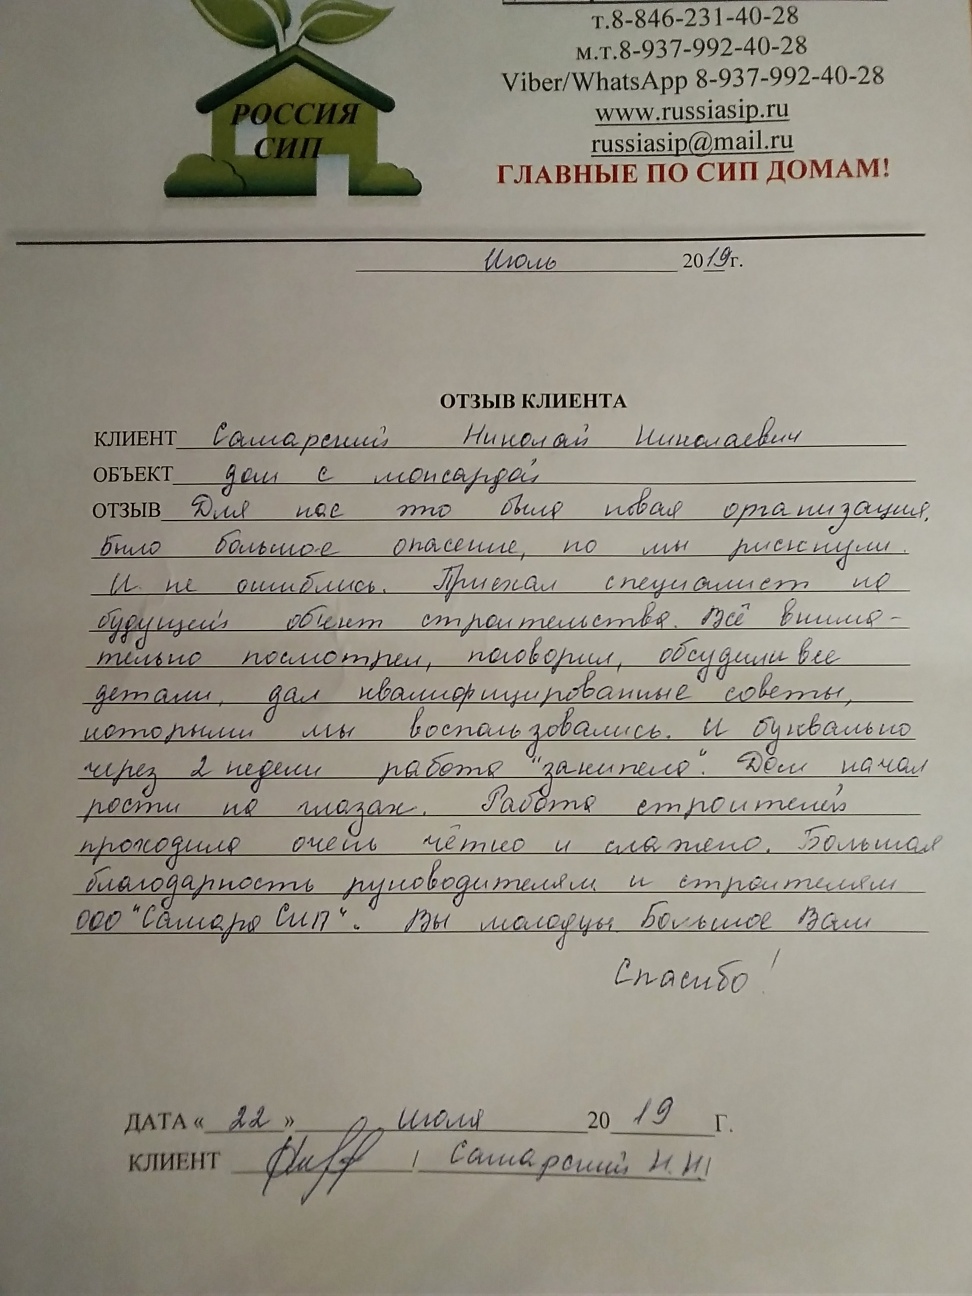 РОССИЯ
СИП
т.8-846-231-40-28
м.т.8-937-992-40-28
Viber/WhatsApp 8-937-992-40-28
www.russiasip.ru
russiasip@mail.ru
ГЛАВНЫЕ ПО СИП ДОМАМ!
Июль 2019г.
ОТЗЫВ КЛИЕНТА
КЛИЕНТ Самарский Николай Николаевич
ОБЪЕКТ дом с мансардой
ОТЗЫВ Для нас это была новая организация.
Было большое опасение, но мы рискнули.
И не ошиблись. Приехал специалист на
будущий объект строительства. Всё внима-
тельно посмотрел, поговорил, обсудили все
детали, дал квалифицированные советы,
которыми мы воспользовались. И буквально
через 2 недели работа "закипела". Дом начал
расти на глазах. Работа строителей
проходила очень чётко и слажено. Большая
благодарность руководителям и строителям
ООО "Самара СИП". Вы молодцы. Большое Вам
Спасибо!
ДАТА « 22 » Июля 2019 Г.
КЛИЕНТ / Самарский Н.Н/